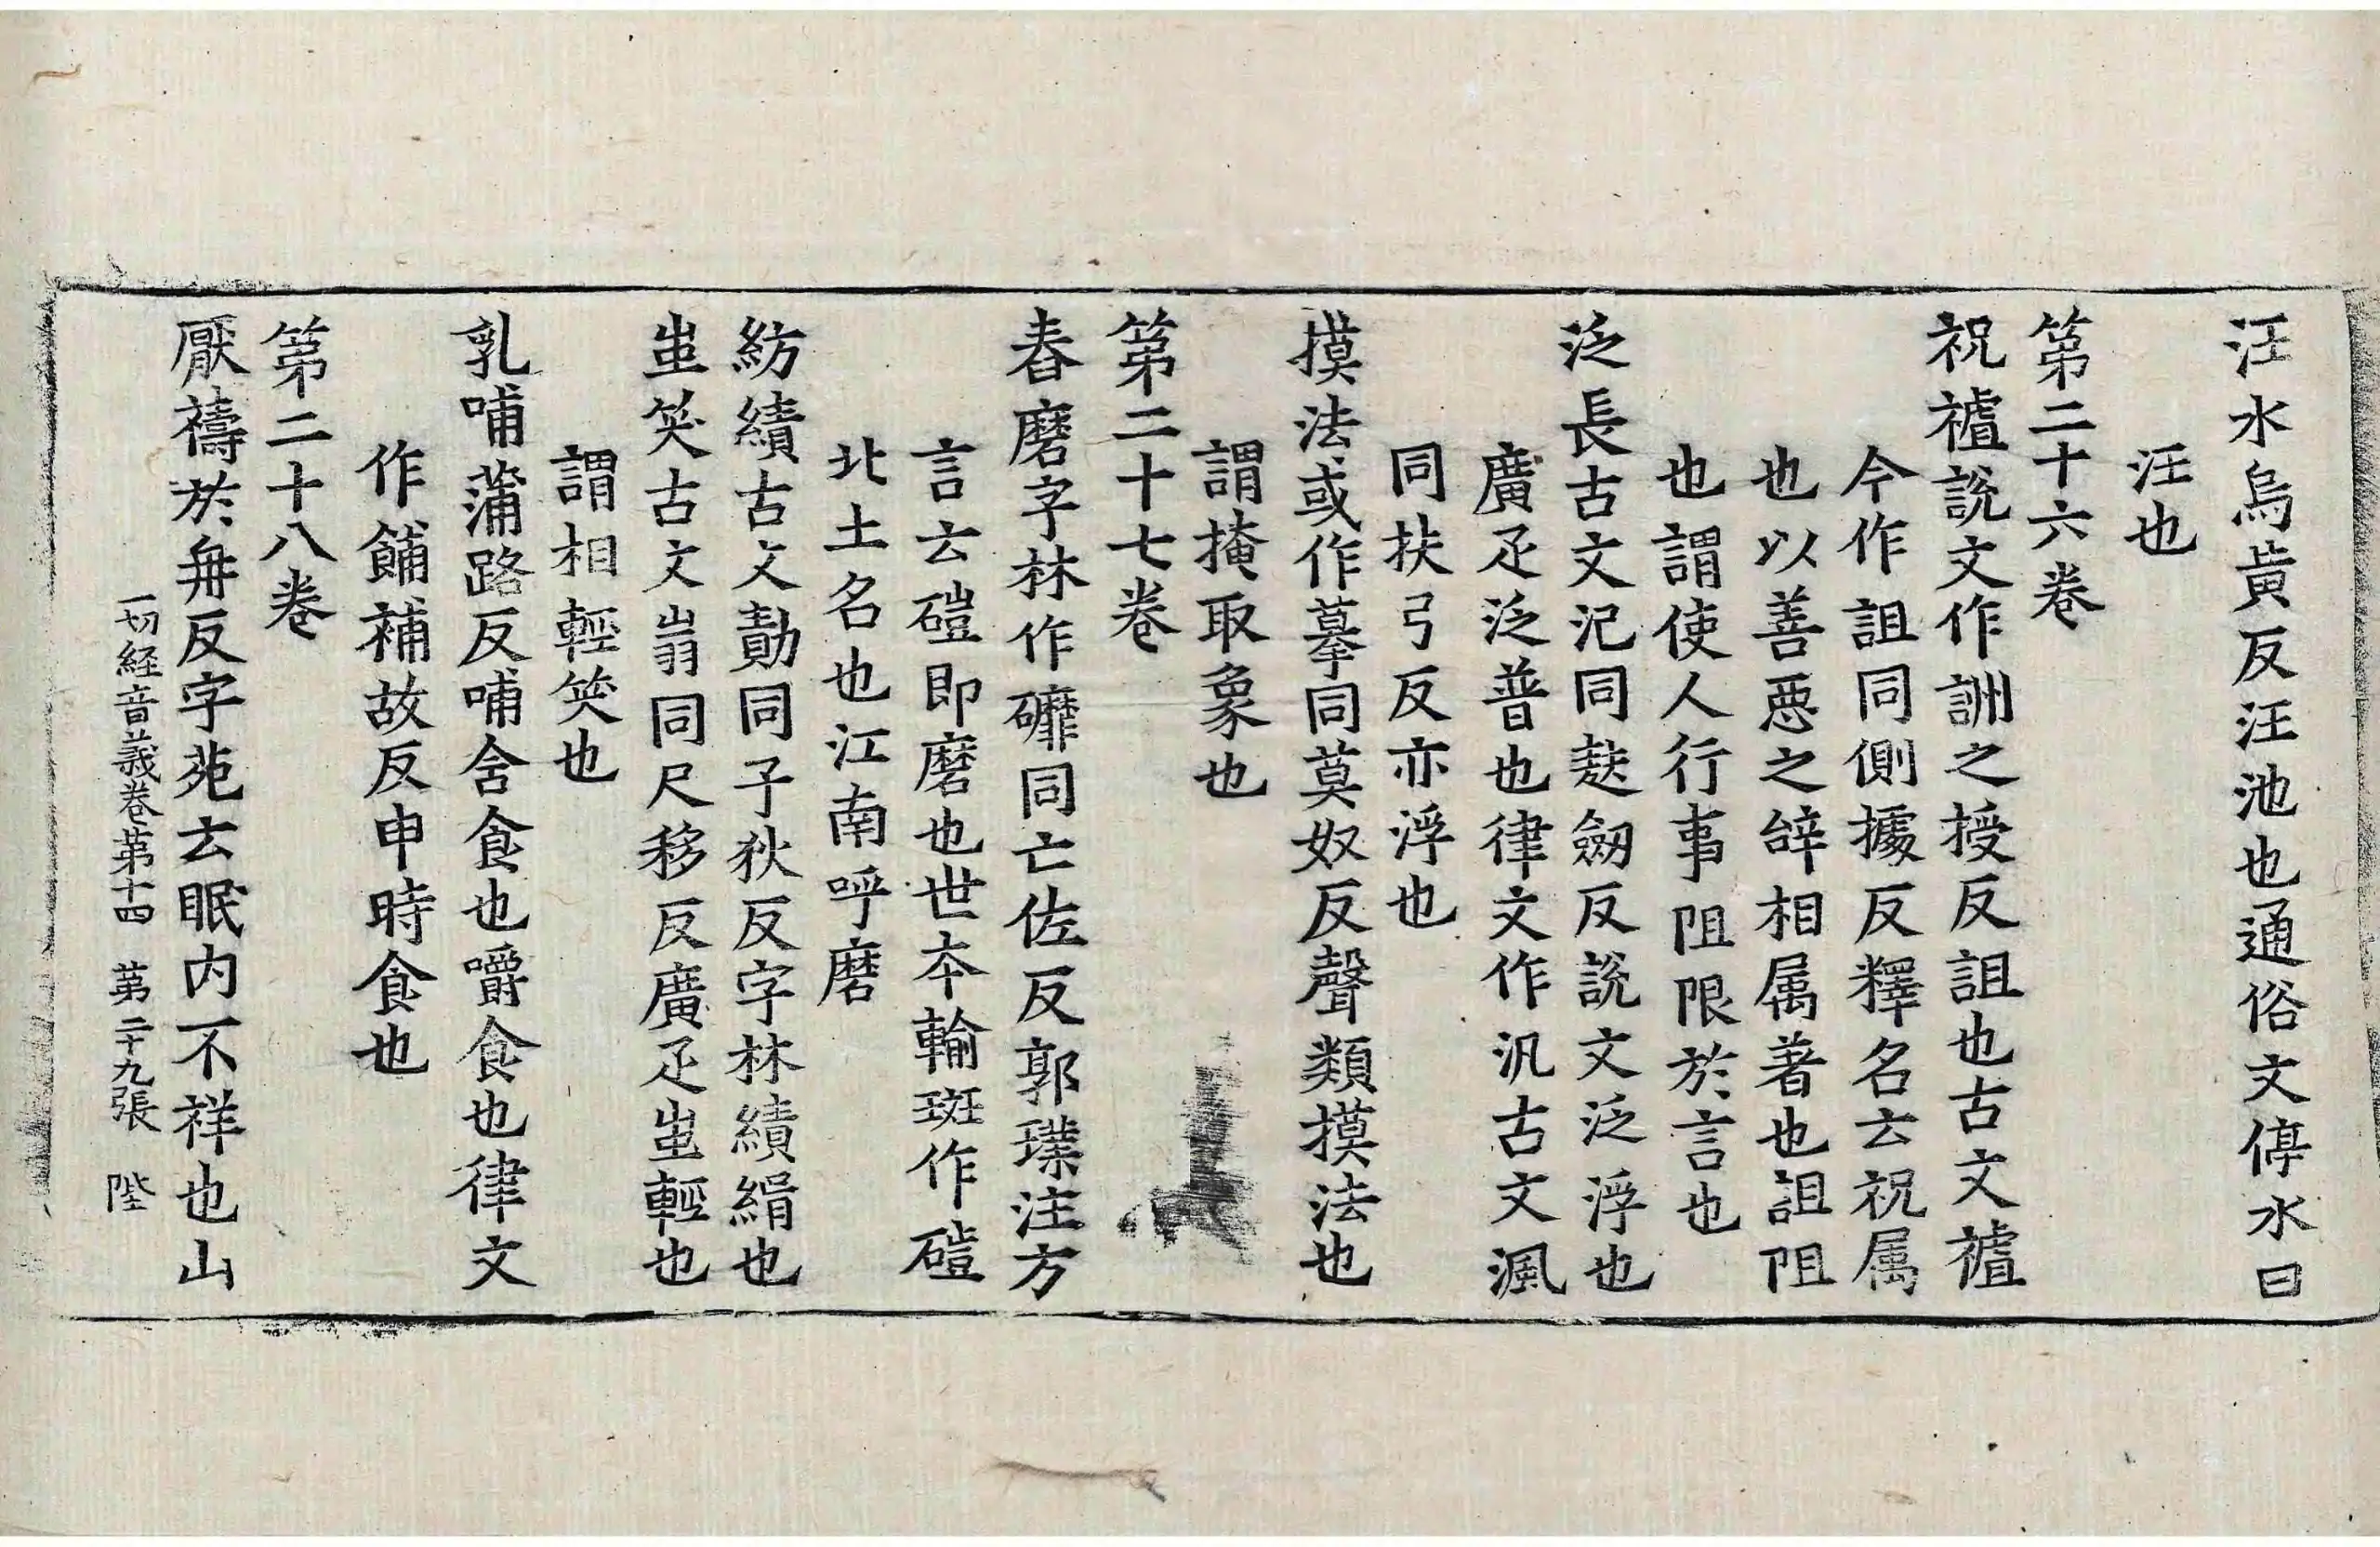 汪水烏黃反汪池也通俗文停水曰
汪也
第二十六卷
祝䄏說文作詶之授反詛也古文䄏
今作詛同側據反釋名云祝属
也以善惡之辝相属著也詛阻
也謂使人行事阻限於言也
泛長古文氾同䒀劒反說文泛浮也
廣疋泛普也律文作汎古文渢
同扶弓反亦浮也
摸法或作摹同莫奴反聲類摸法也
謂掩取象也
第二十七卷
舂磨字林作䃺同亡佐反郭璞注方
言云磑即磨也世夲輸班作磑
北土名也江南呼磨
紡績古文勣同子狄反字林績緝也
蚩笑古文𡴥同尺移反廣疋蚩輕也
謂相輕笑也
乳哺蒲路反哺含食也嚼食也律文
作餔補故反申時食也
第二十八卷
厭禱於冉反字苑云眠内不祥也山
一切経音義卷第十四 第二十九張 陛